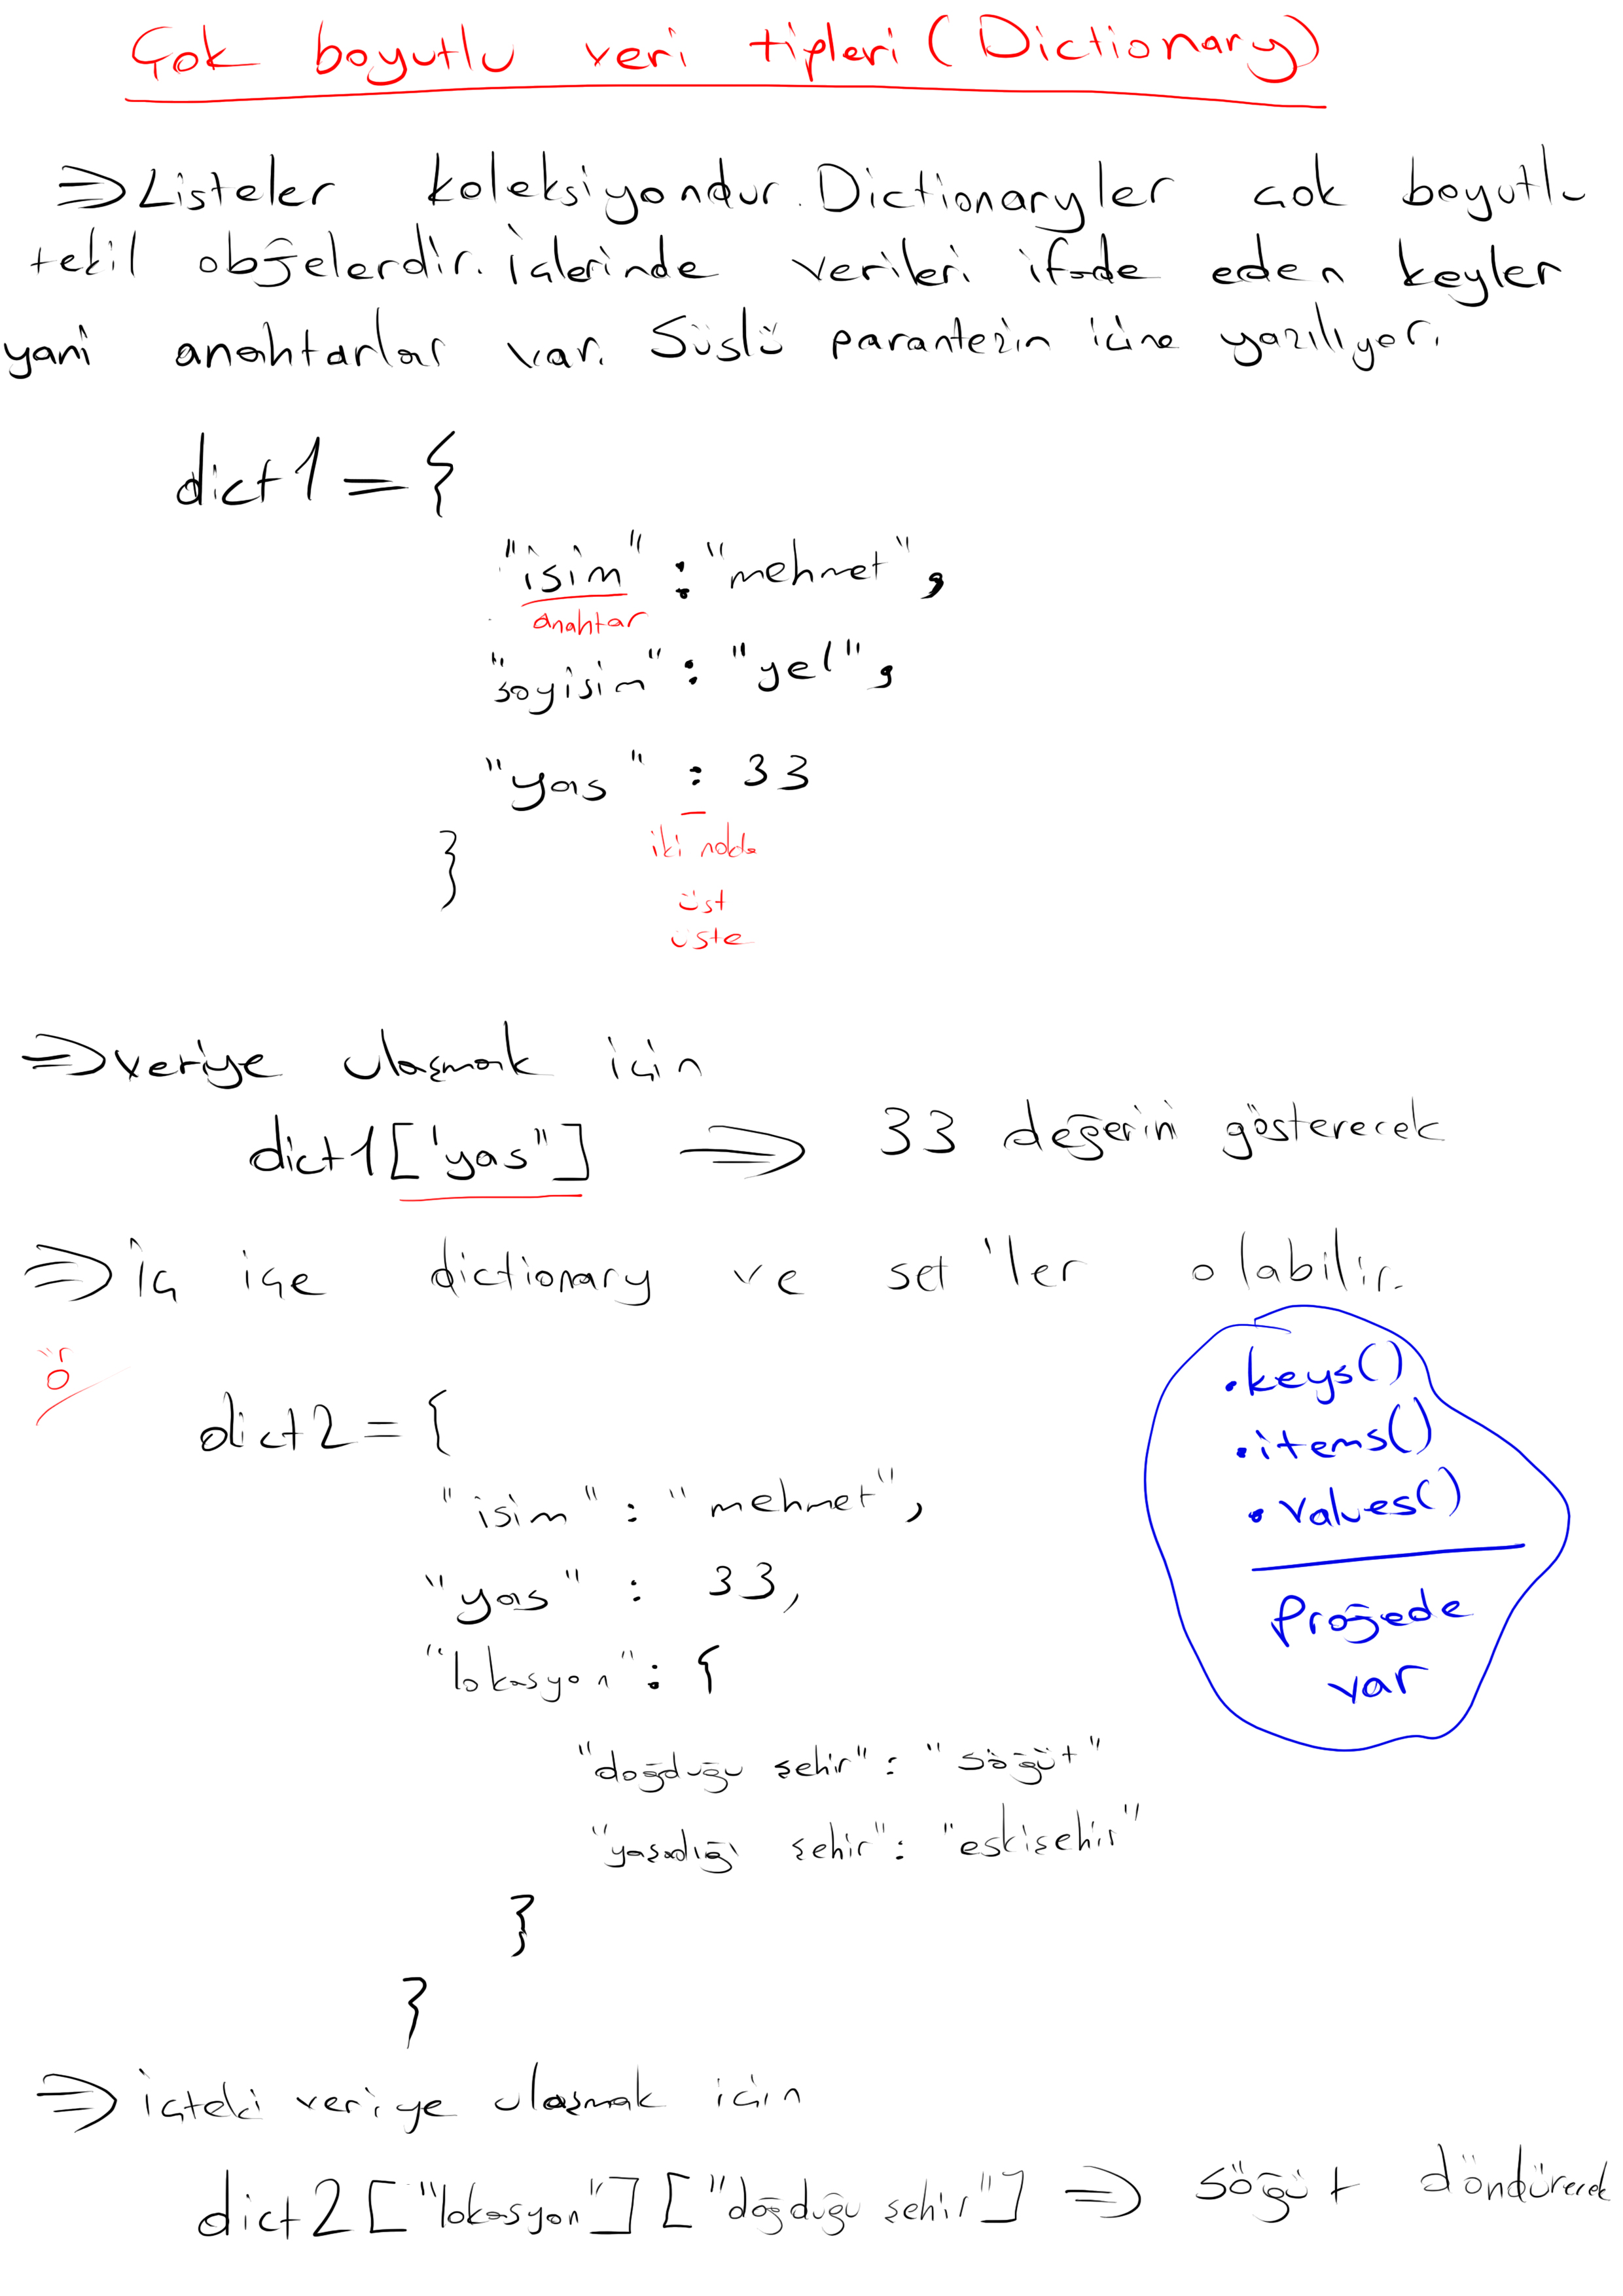 Çok boyutlu veri tipleri (Dictionary)
⇒ Listeler koleksiyondur. Dictionaryler çok boyutlu
tekil obğelerdir. İçlerinde verileri ifade eden keyler
yani anahtarlar var. Süslü parantezin içine yazılıyor.
dict1 = {
"isim" : "mehmet",
anahtar
"soyisim" : "yel",
"yas" : 33
iki nokta
üst
üste
}
⇒ veriye ulaşmak için
dict1["yas"] ⇒ 33 değerini gösterecek
⇒ İç içe dictionary ve set'ler olabilir.
ör
dict2 = {
"isim" : "mehmet",
"yas" : 33,
"lokasyon" : {
"doğduğu şehir" : "söğüt"
"yaşadığı şehir" : "eskişehir"
}
}
.keys()
.items()
.values()
Proğede
var
⇒ içteki veriye ulaşmak için
dict2["lokasyon"]["doğduğu şehir"] ⇒ söğüt döndürecek